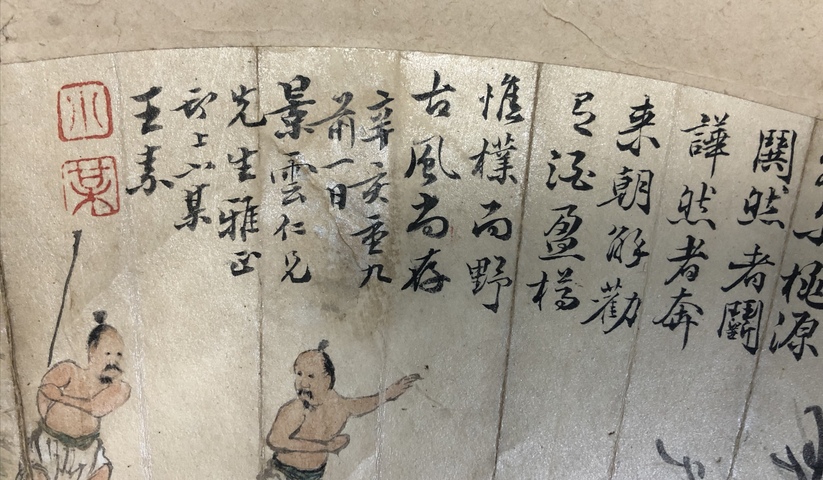 極源
鬨然者鬭
譁然者奔
来朝解勸
酒盈樽
惟樸而野
古風尚存
辛亥重九
前一日
景雲仁兄
先生雅正
邗上小某
王素
小某